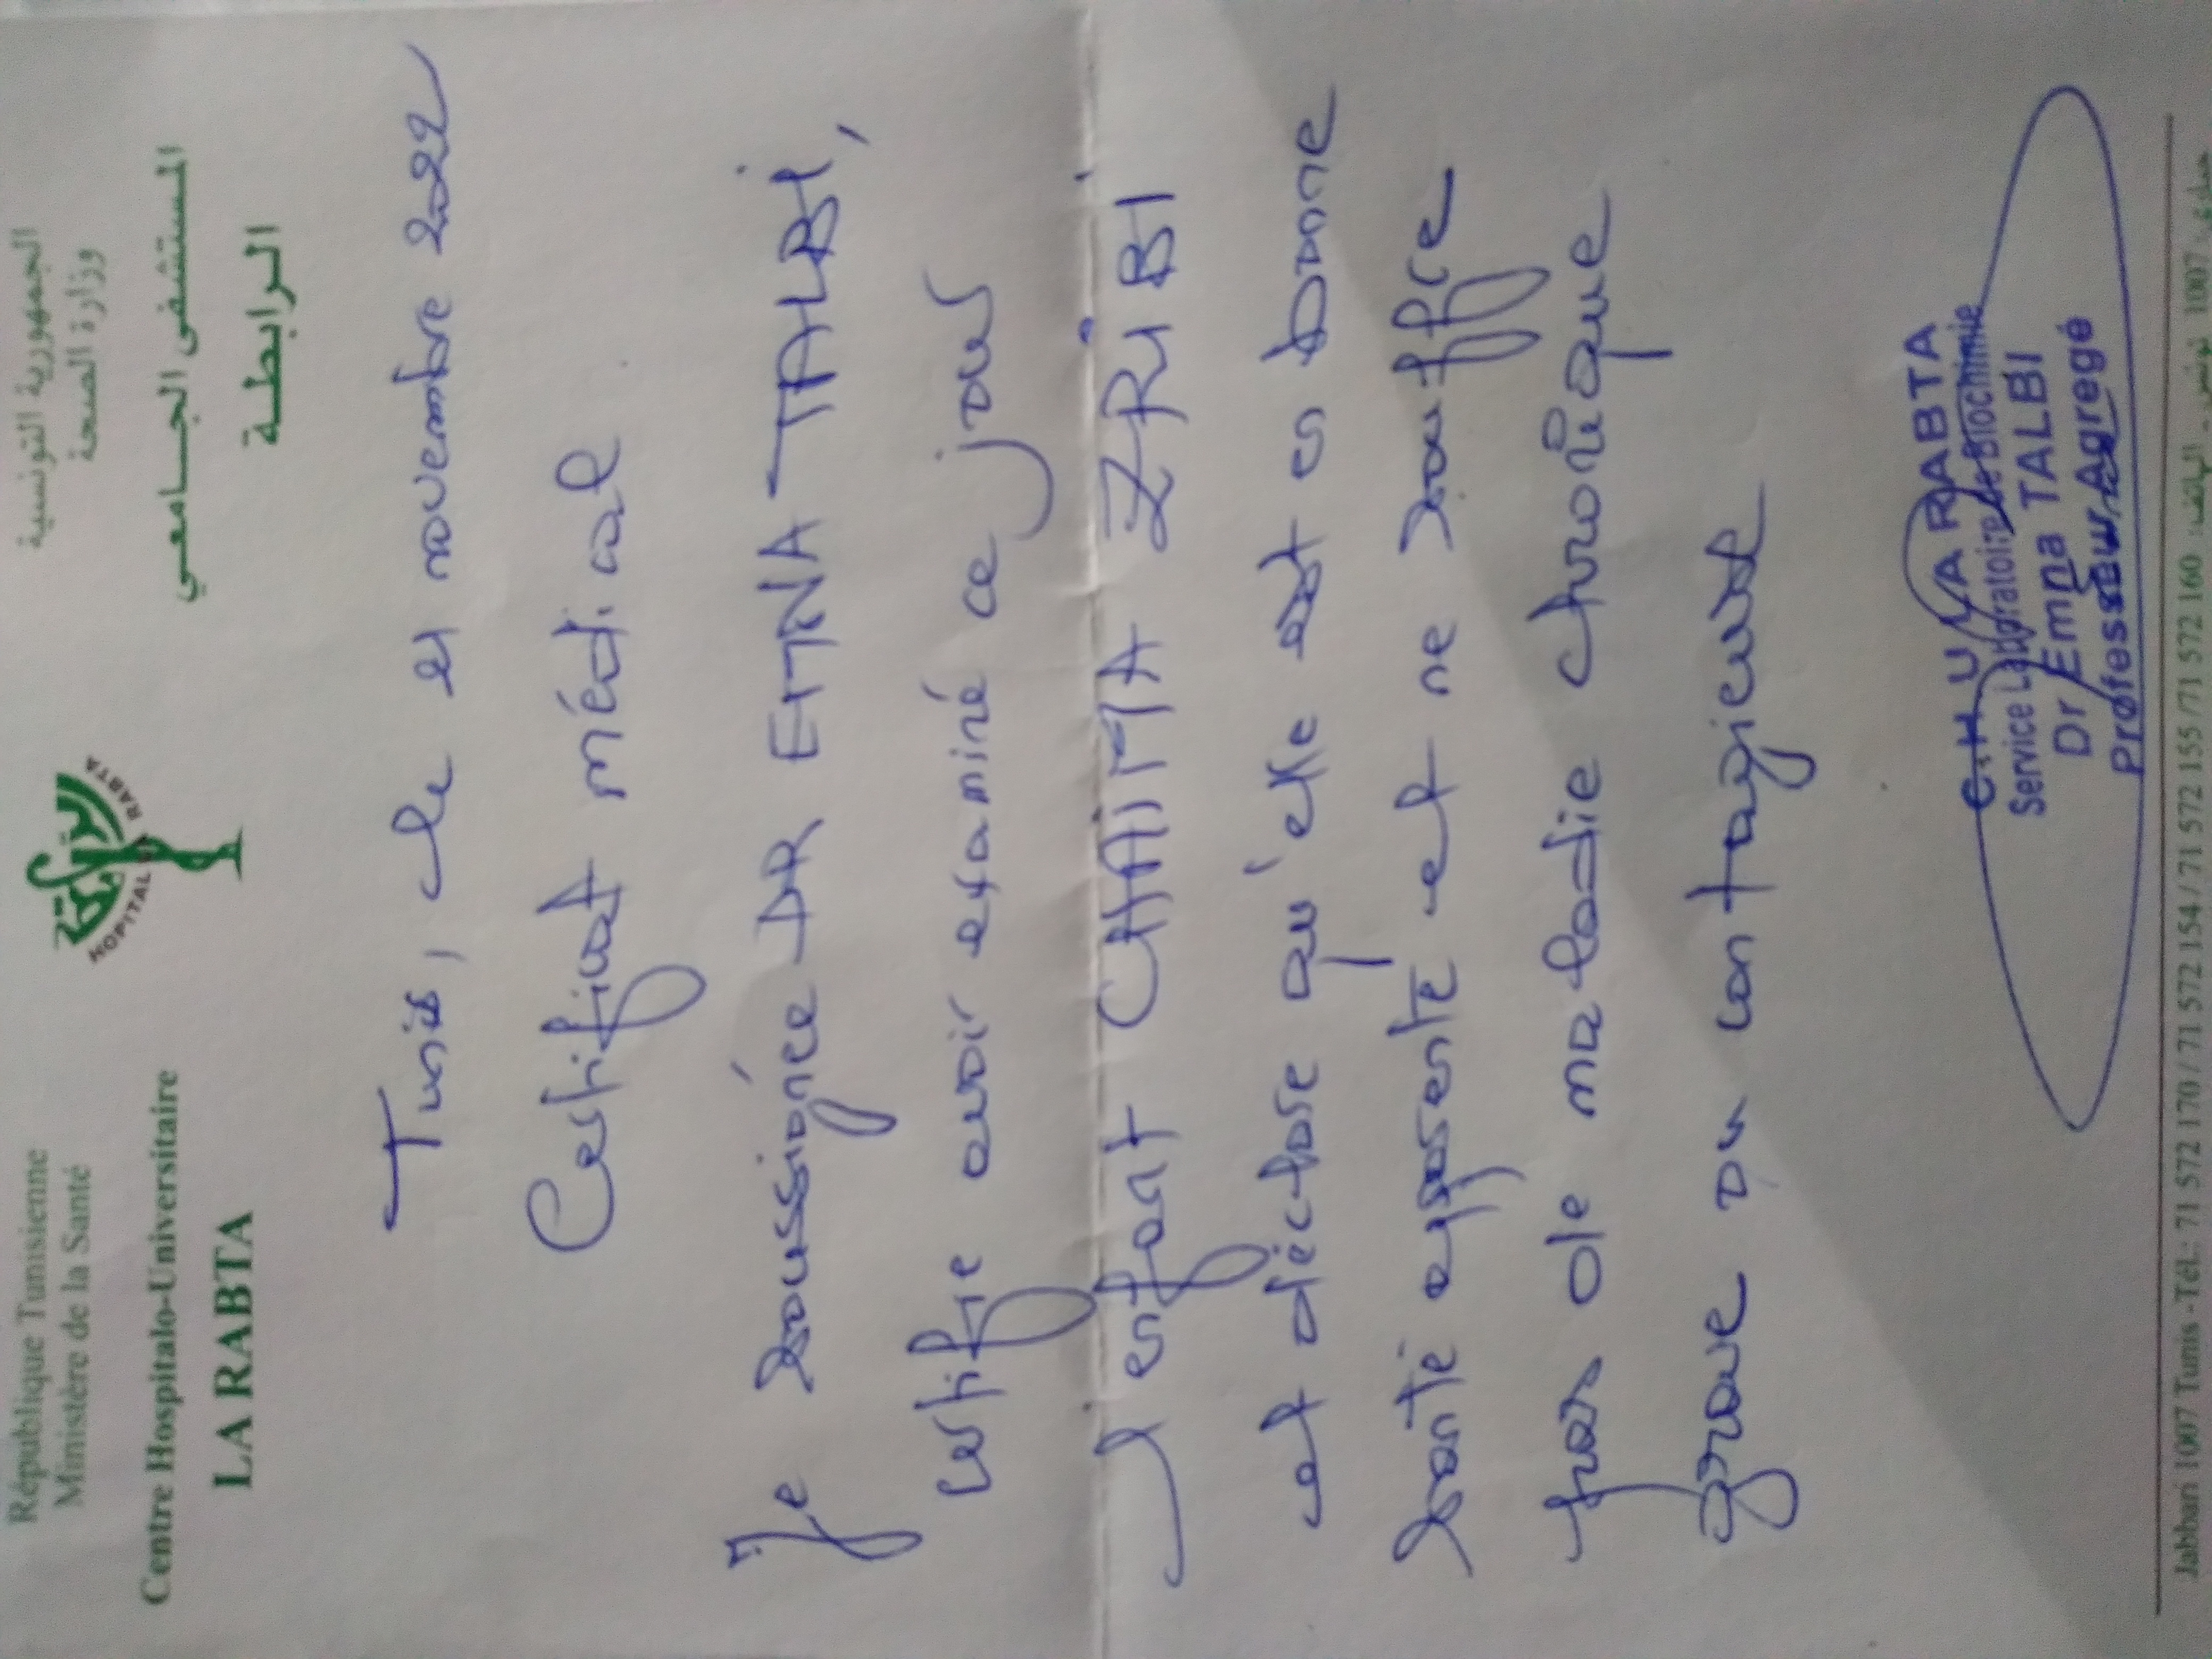 République Tunisienne
Ministère de la Santé
Centre Hospitalo-Universitaire
LA RABTA
HOPITAL LA RABTA
الرابطة
الجمهورية التونسية
وزارة الصحة
المستشفى الجامعي
الرابطة
Tunis, le 21 novembre 2022
Certificat médical
Je soussignée DR EMNA TALBI,
certifie avoir examiné ce jour
l'enfant CHAIMA ZRIBI
et déclare qu'elle est en bonne
santé apparente et ne souffre
pas de maladie chronique
grave ou contagieuse
C.H.U LA RABTA
Service Laboratoire de Biochimie
Dr Emna TALBI
Professeur Agregé
Jabbari 1007 Tunis - Tél.: 71 572 170 / 71 572 154 / 71 572 155 / 71 572 160 :الهاتف - تونس 1007 جباري